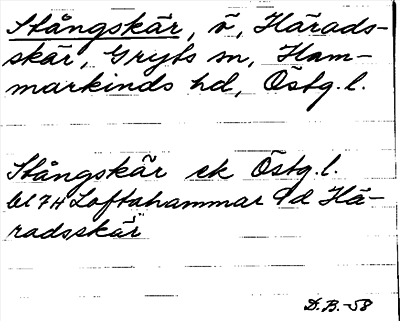 Stångskär, ö, Härads-
skär, Gryts sn, Ham-
markinds hd, Östg. l.
Stångskär ek Östg. l.
bl 74 Loftahammar 9d Hä-
radsskär
D.B.-58